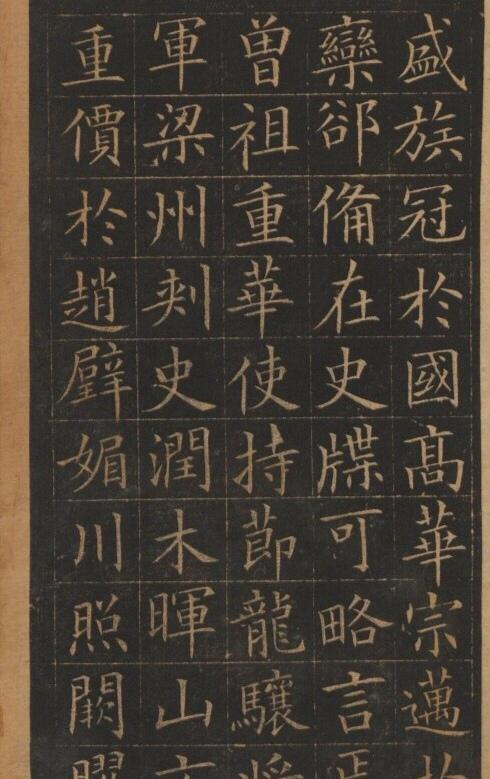 盛族冠於國高華宗邁
欒郤備在史牒可略言
曾祖重華使持節龍驤
軍梁州刾史潤木暉山
重價於趙璧媚川照闕